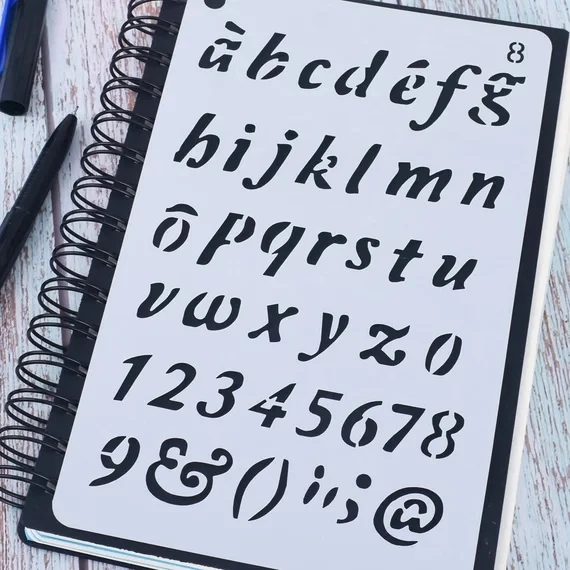 8
àbcdéfg̃
hijklmn
ôpqrstu
vwxyz0
12345678
9&();@